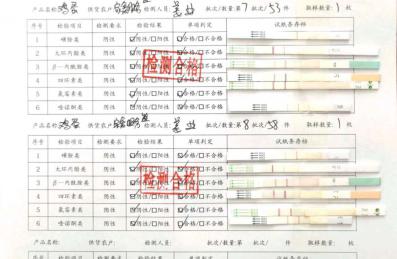 产品名称: 鸡蛋 供货农户: 检测人员: 批次/数量:第7批次/53件 取样数量:1枚
序号 检验项目 检验要求 检验结果 单项判定 试纸条存档
1 磺胺类 阴性 ☑阴性/□阳性 ☑合格/□不合格
2 大环内酯类 阴性 ☑阴性/□阳性 ☑合格/□不合格
3 β-内酰胺类 阴性 ☑阴性/□阳性 ☑合格/□不合格
4 四环素类 阴性 ☑阴性/□阳性 ☑合格/□不合格
5 氟苯素类 阴性 ☑阴性/□阳性 ☑合格/□不合格
6 喹诺酮类 阴性 ☑阴性/□阳性 ☑合格/□不合格
检测合格
产品名称: 鸡蛋 供货农户: 检测人员: 批次/数量:第8批次/58件 取样数量:1枚
序号 检验项目 检验要求 检验结果 单项判定 试纸条存档
1 磺胺类 阴性 ☑阴性/□阳性 ☑合格/□不合格
2 大环内酯类 阴性 ☑阴性/□阳性 ☑合格/□不合格
3 β-内酰胺类 阴性 ☑阴性/□阳性 ☑合格/□不合格
4 四环素类 阴性 ☑阴性/□阳性 ☑合格/□不合格
5 氟苯素类 阴性 ☑阴性/□阳性 ☑合格/□不合格
6 喹诺酮类 阴性 ☑阴性/□阳性 ☑合格/□不合格
检测合格
产品名称: 供货农户: 检测人员: 批次/数量:第 批次/ 件 取样数量: